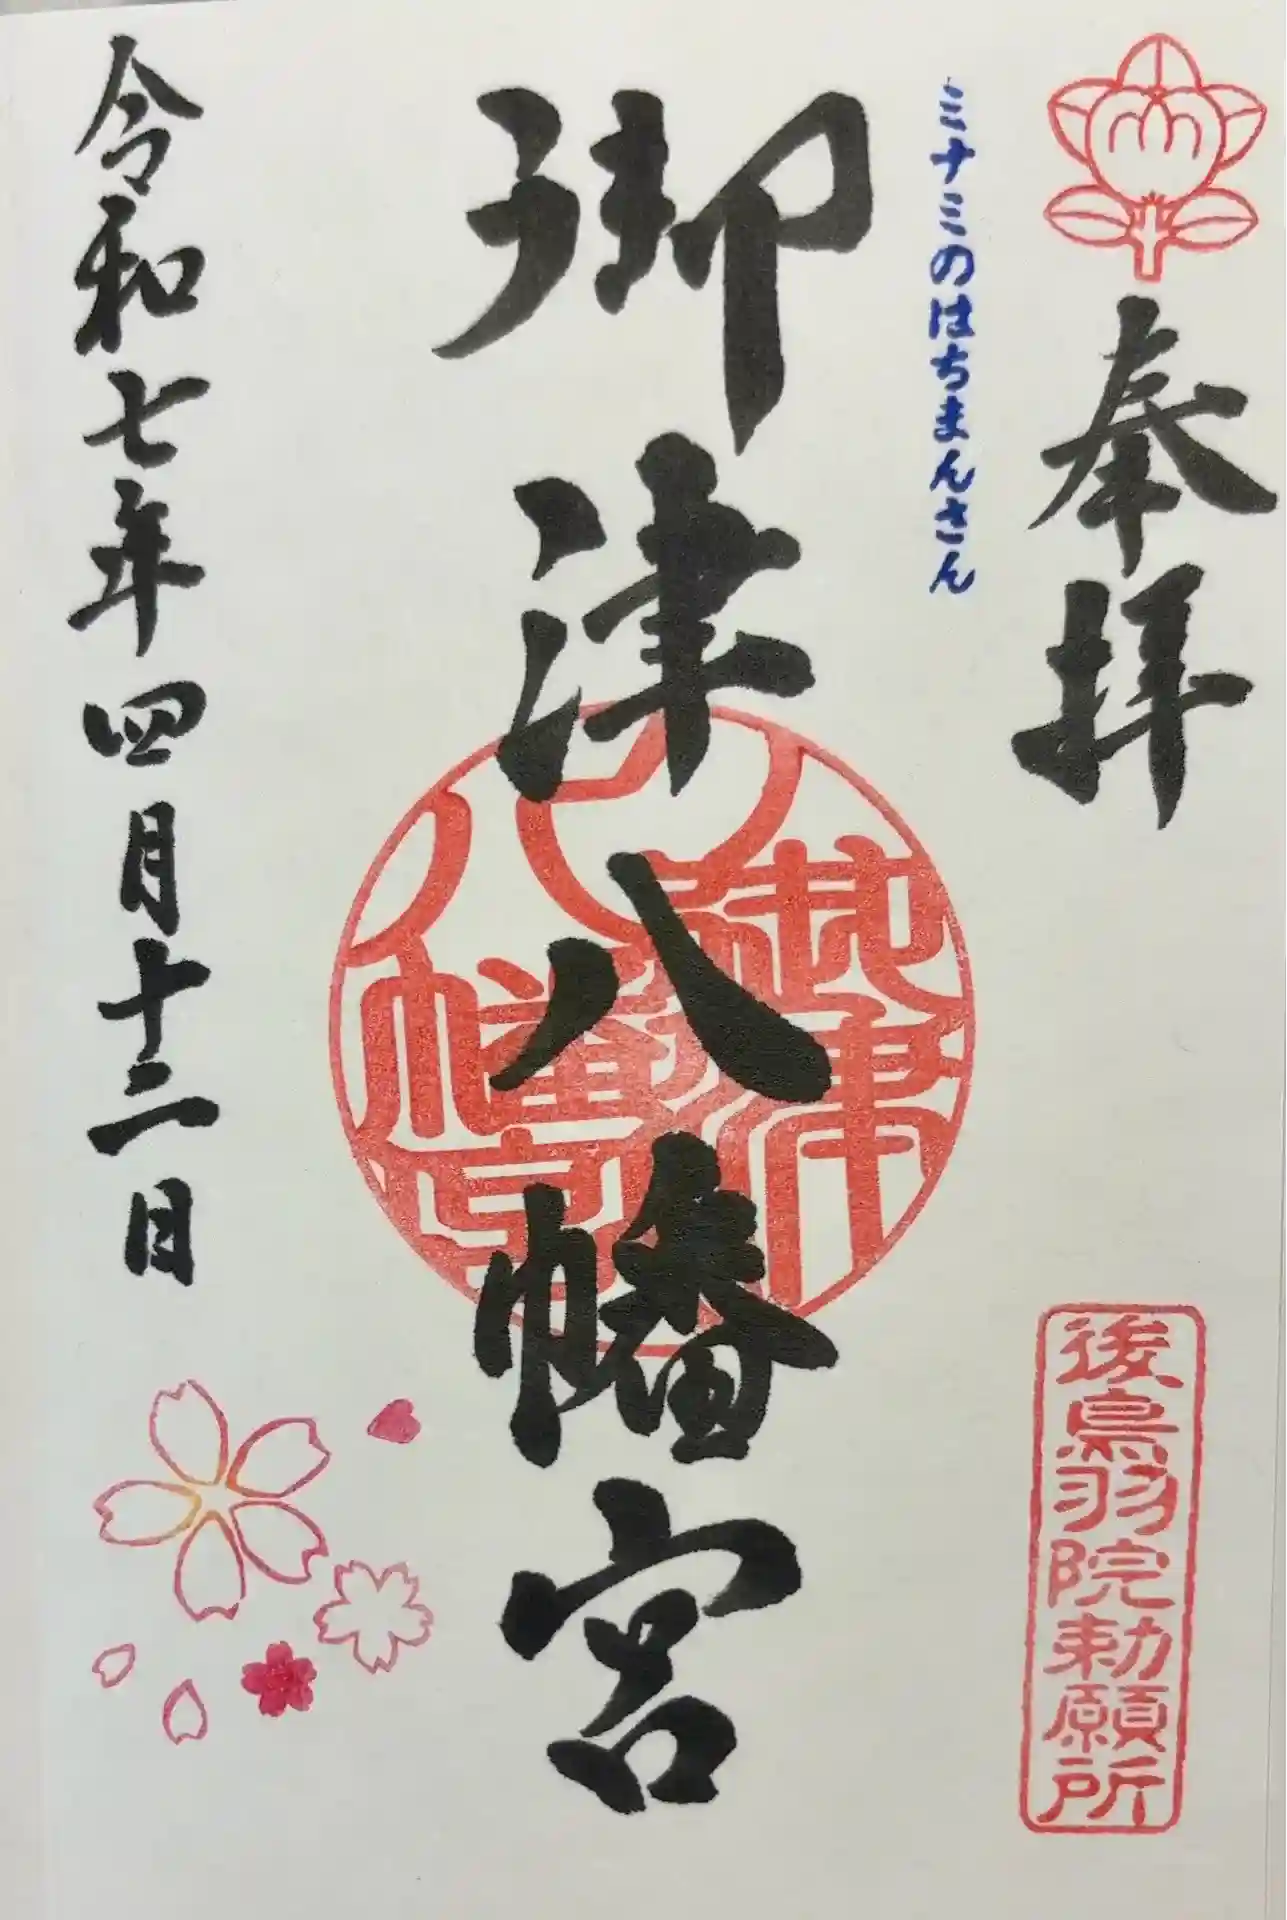 奉拝
後鳥羽院勅願所
ミナミのはちまんさん
御津八幡宮
令和七年四月十二日